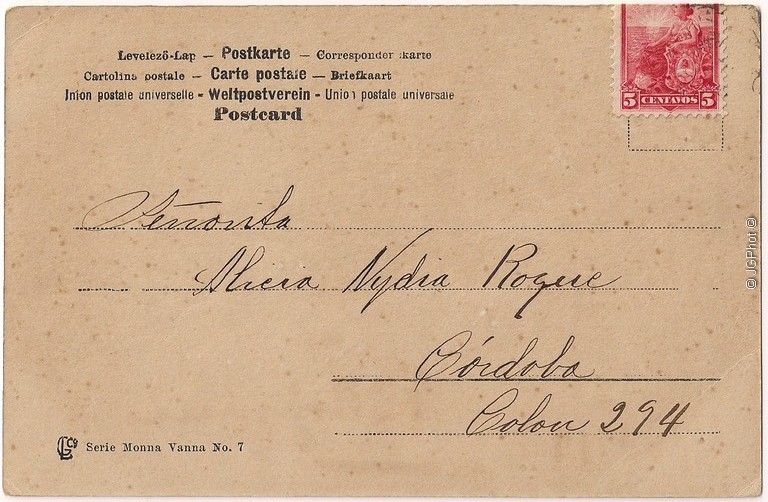 Levelező-Lap — Postkarte — Correspondenzkarte
Cartolina postale — Carte postale — Briefkaart
Union postale universelle - Weltpostverein - Union postale universale
Postcard
5 CENTAVOS 5
Señorita
Alicia Nydia
Córdoba
Colon 294
Serie Monna Vanna No. 7
© JGPhot ©